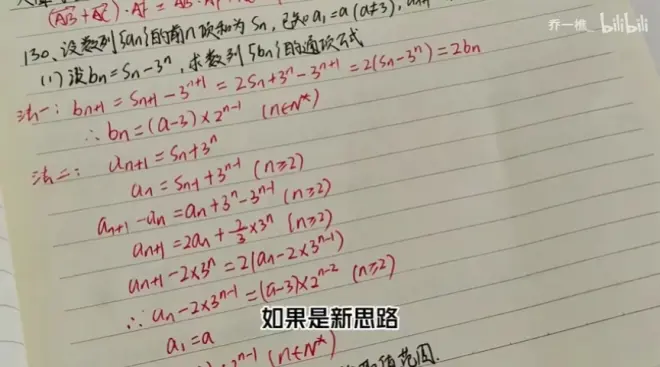 (AB+AC)·AP = AB·A
130、设数列{an}的前n项和为Sn,已知a1=a(a≠3),an+1
(1)设bn=Sn-3^n,求数列{bn}的通项公式
法一:bn+1=Sn+1-3^{n+1}=2Sn+3^n-3^{n+1}=2(Sn-3^n)=2bn
∴bn=(a-3)×2^{n-1} (n∈N*)
法二:an+1=Sn+3^n
an=Sn-1+3^{n-1}(n≥2)
an+1-an=an+3^n-3^{n-1}(n≥2)
an+1=2an+2/3×3^n(n≥2)
an+1-2×3^n=2(an-2×3^{n-1})
∴an-2×3^{n-1}=(a-3)×2^{n-2}(n≥2)
a1=a
2^{n-1}(n∈N*)
取值范围.
如果是新思路
乔一樵_
bilibili